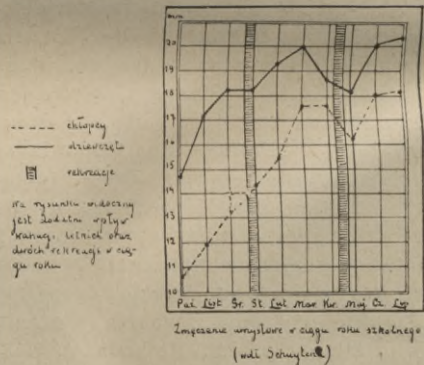 chłopcy
dziewczęta
rekreacje
Na rysunku widoczny
jest dodatni wpływ
wakacyj letnich oraz
dwóch rekreacji w cią-
gu roku
20
19
18
17
16
15
14
13
12
11
10
Paź. List Gr. St. Lut Mar. Kw. Maj Cz. Lip
Zmęczenie umysłowe w ciągu roku szkolnego
(wdł. Schuytena)